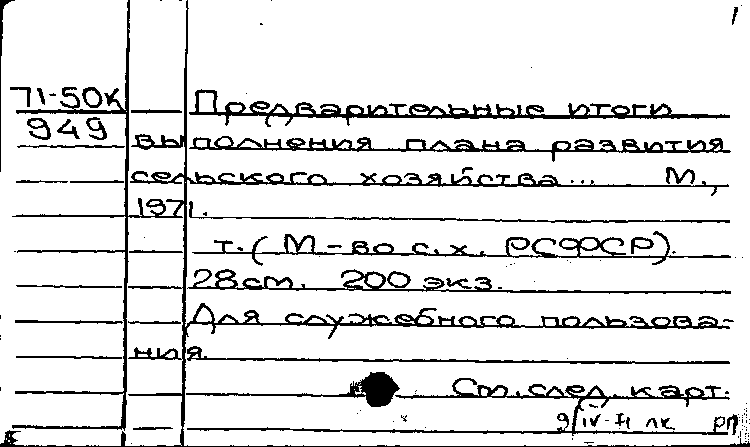 1
71-50к Предварительные итоги
949 выполнения плана развития
сельского хозяйства... М.,
1971.
т. (М-во с.х. РСФСР).
28см. 200 экз.
Для служебного пользова-
ния.
См. след. карт.
9/IV-71 лк рп